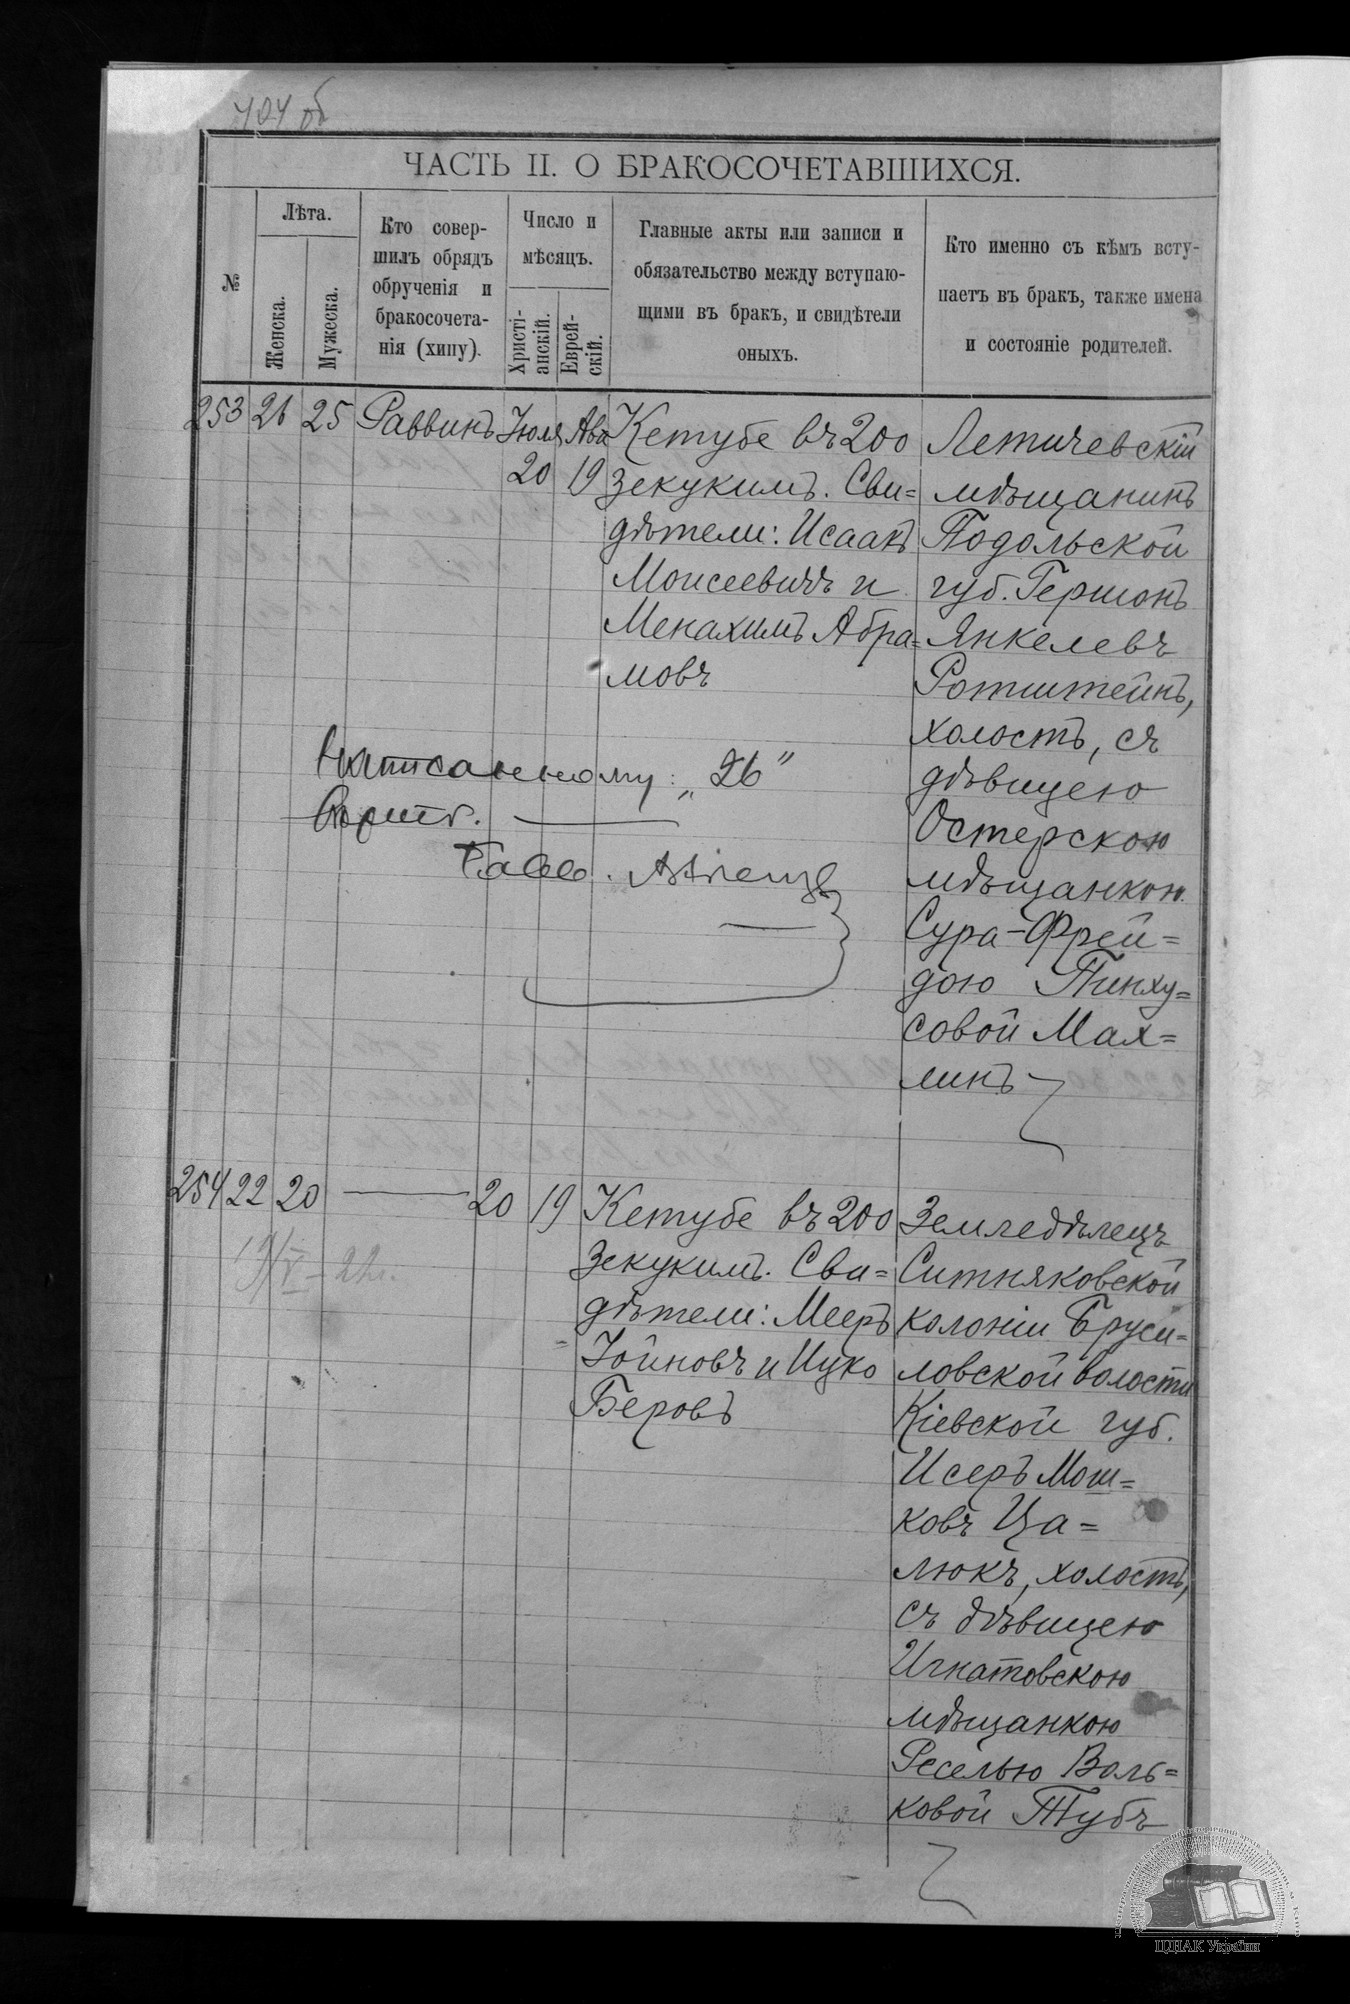 404 об
ЧАСТЬ II. О БРАКОСОЧЕТАВШИХСЯ.
№
Лѣта.
Женска.
Мужеска.
Кто совер-
шилъ обрядъ
обрученія и
бракосочета-
нія (хипу).
Число и
мѣсяцъ.
Христі-
анскій.
Еврей-
скій.
Главные акты или записи и
обязательство между вступаю-
щими въ бракъ, и свидѣтели
оныхъ.
Кто именно съ кѣмъ всту-
паетъ въ бракъ, также имена
и состояніе родителей.
253 26 25 Раввинъ Іюля Ава
20 19
Кетубе въ 200
Зекукимъ. Сви=
дѣтели: Исаакъ
Моисеевичъ и
Менахимъ Абра=
мовъ
Летичевскій
мѣщанинъ
Подольской
губ. Гершонъ
Янкелевъ
Ротштейнъ,
холостъ, съ
дѣвицею
Остерскою
мѣщанкою
Сура-Фрей=
дою Пинху=
совой Мах=
линъ
Написанному: „26”
вѣрить.
Равв.
254 22 20 — 20 19
19/V - 22г.
Кетубе въ 200
Зекукимъ. Сви=
дѣтели: Мееръ
Іойновъ и Ицко
Беровъ
Земледѣлецъ
Ситняковской
колоніи Бруси=
ловской волости
Кіевской губ.
Исеръ Мош=
ковъ Ца=
люкъ, холостъ,
съ дѣвицею
Игнатовскою
мѣщанкою
Реселью Воль=
ковой Тубъ
ЦДІАК України